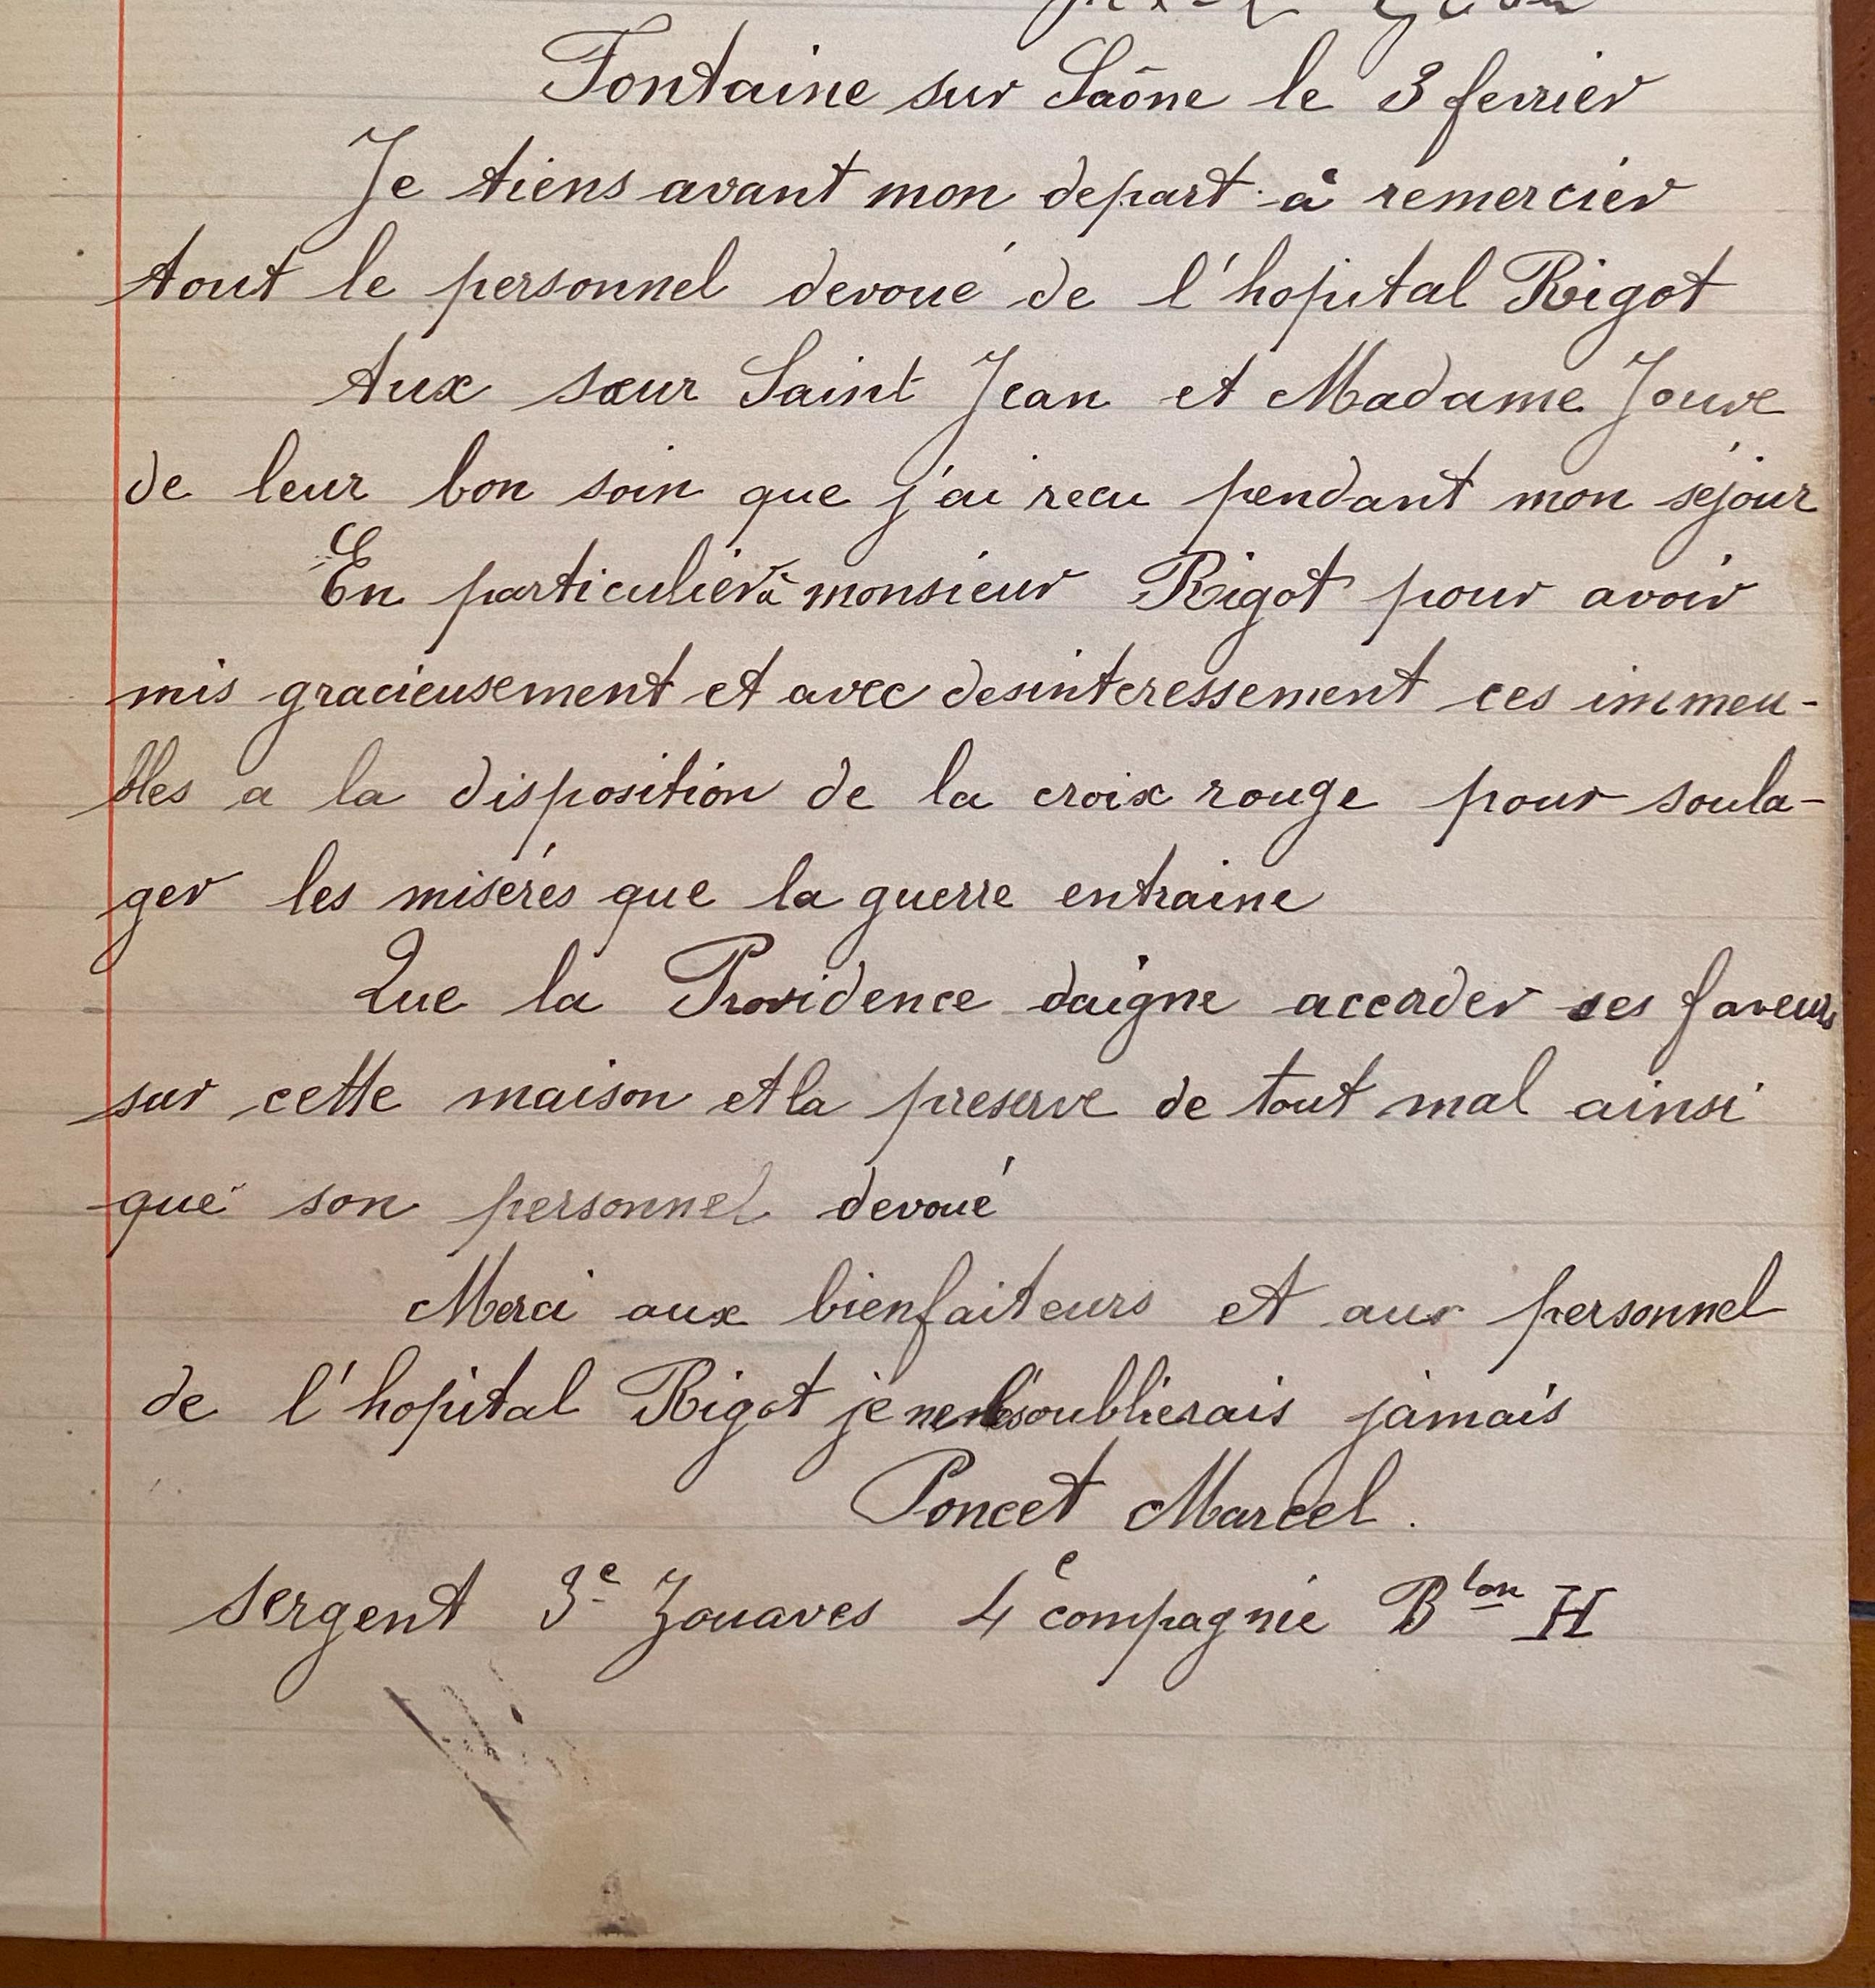 Fontaine sur Saône le 3 fevrier
Je tiens avant mon depart à remercier
tout le personnel devoué de l'hopital Rigot
Aux sœur Saint Jean et Madame Jouve
de leur bon soin que j'ai recu pendant mon séjour
En particulier à monsieur Rigot pour avoir
mis gracieusement et avec desinteressement ces immeu-
bles a la disposition de la croix rouge pour soula-
ger les misères que la guerre entraine
Que la Providence daigne accorder ses faveurs
sur cette maison et la preserve de tout mal ainsi
que son personnel devoué
Merci aux bienfaiteurs et aux personnel
de l'hopital Rigot je ne les oublierais jamais
Poncet Marcel.
sergent 3e Zouaves 4e compagnie Blon H